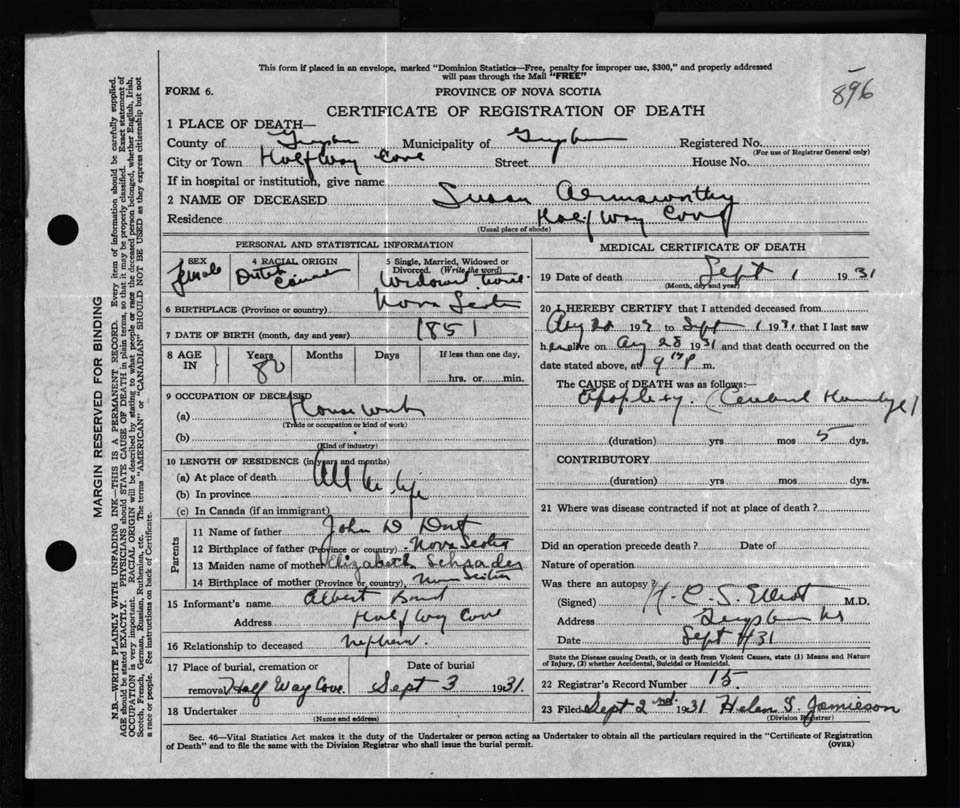 This form if placed in an envelope, marked "Dominion Statistics—Free, penalty for improper use, $300," and properly addressed
will pass through the Mail "FREE"
896
FORM 6.
PROVINCE OF NOVA SCOTIA
CERTIFICATE OF REGISTRATION OF DEATH
1 PLACE OF DEATH—
County of Guysboro Municipality of Guysboro Registered No.
(For use of Registrar General only)
City or Town Half Way Cove Street House No.
If in hospital or institution, give name
2 NAME OF DECEASED Susan Armsworthy
Residence Half Way Cove
(Usual place of abode)
PERSONAL AND STATISTICAL INFORMATION
3 SEX female
4 RACIAL ORIGIN Dutch
5 Single, Married, Widowed or Divorced. (Write the word) Widowed
6 BIRTHPLACE (Province or country) Nova Scotia
7 DATE OF BIRTH (month, day and year) 1851
8 AGE IN Years 80 Months Days If less than one day, hrs. or min.
9 OCCUPATION OF DECEASED
(a) House work
(Trade or occupation or kind of work)
(b)
(Kind of industry)
10 LENGTH OF RESIDENCE (in years and months)
(a) At place of death All her life
(b) In province
(c) In Canada (if an immigrant)
Parents
11 Name of father John D
12 Birthplace of father (Province or country) Nova Scotia
13 Maiden name of mother Elizabeth Schrader
14 Birthplace of mother (Province or country) Nova Scotia
15 Informant's name Albert
Address Half Way Cove
16 Relationship to deceased nephew.
17 Place of burial, cremation or removal Half Way Cove. Date of burial Sept 3 1931.
18 Undertaker
(Name and address)
MEDICAL CERTIFICATE OF DEATH
19 Date of death Sept 1 1931
(Month, day and year)
20 I HEREBY CERTIFY that I attended deceased from
Aug 193 to Sept 1 1931 that I last saw
her alive on Aug 28 1931 and that death occurred on the
date stated above, at 9 P m.
The CAUSE of DEATH was as follows:—
Apoplexy. (Cerebral Hemorrhage)
(duration) yrs mos 5 dys.
CONTRIBUTORY
(duration) yrs. mos. dys.
21 Where was disease contracted if not at place of death?
Did an operation precede death? Date of
Nature of operation
Was there an autopsy?
(Signed) H. C. S. Elliot M.D.
Address Guysboro NS
Date Sept 31
State the Disease causing Death, or in death from Violent Causes, state (1) Means and Nature
of Injury, (2) whether Accidental, Suicidal or Homicidal.
22 Registrar's Record Number 15.
23 Filed Sept 2nd 1931 Helen S. Jamieson
(Division Registrar)
Sec. 46—Vital Statistics Act makes it the duty of the Undertaker or person acting as Undertaker to obtain all the particulars required in the "Certificate of Registration
of Death" and to file the same with the Division Registrar who shall issue the burial permit.
(OVER)
MARGIN RESERVED FOR BINDING
N.B.—WRITE PLAINLY WITH UNFADING INK—THIS IS A PERMANENT RECORD. Every item of information should be carefully supplied.
AGE should be stated EXACTLY. PHYSICIANS should STATE CAUSE OF DEATH in plain terms, so that it may be properly classified. Exact statement of
OCCUPATION is very important. RACIAL ORIGIN will be described by stating to what people or race the deceased person belonged, whether English, Irish,
Scotch, French, German, Russian, Ruthenian, etc. The terms "AMERICAN" or "CANADIAN" SHOULD NOT BE USED as they express citizenship but not
a race or people. See instructions on back of Certificate.